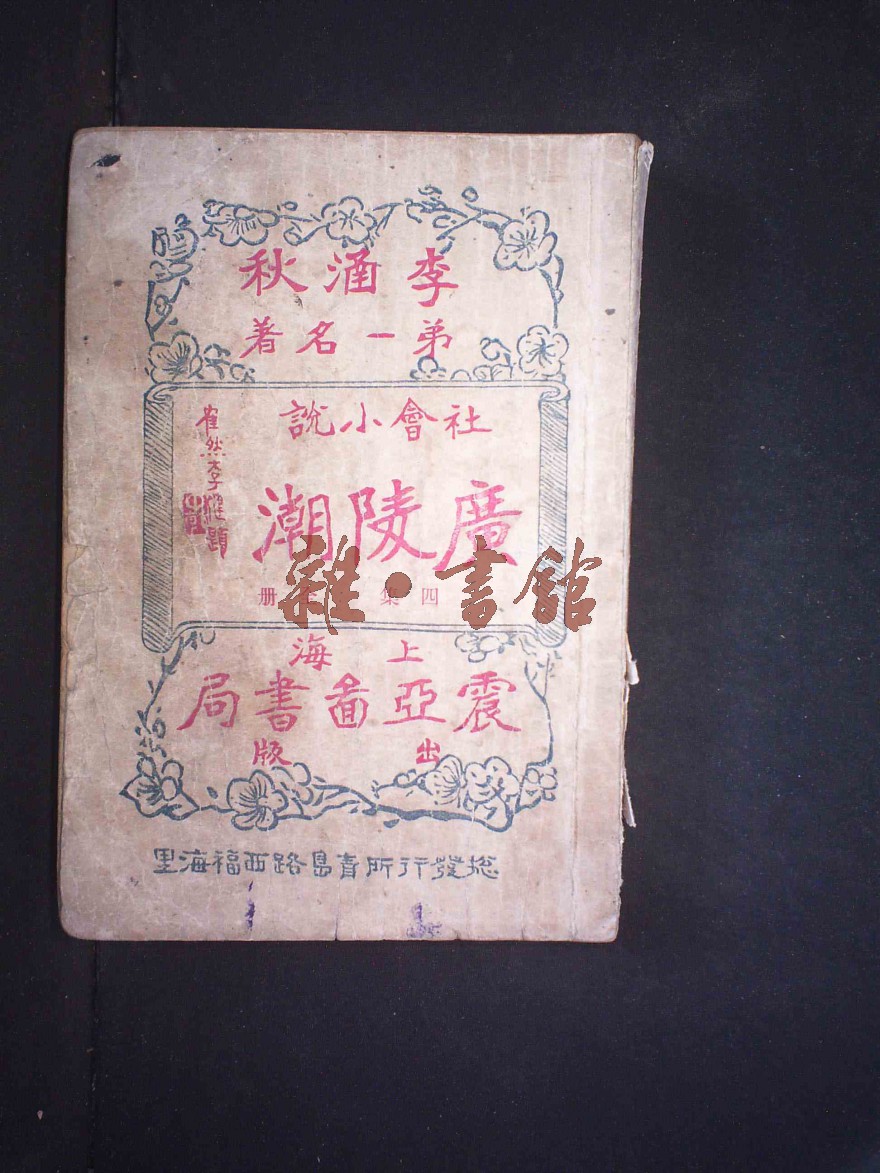 李涵秋
弟一名著
社會小說
廣陵潮
四集 全册
崔然李灌題
上海
震亞啚書局
出版
総發行所青島路西福海里
雜·書館